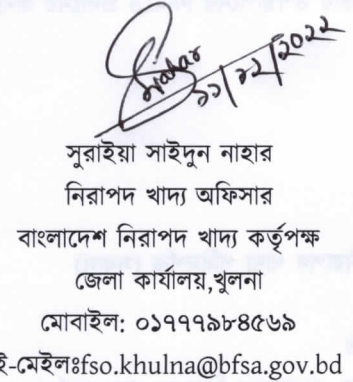 Snahar
১১/১২/২০২২
সুরাইয়া সাইদুন নাহার
নিরাপদ খাদ্য অফিসার
বাংলাদেশ নিরাপদ খাদ্য কর্তৃপক্ষ
জেলা কার্যালয়,খুলনা
মোবাইল: ০১৭৭৭৯৮৪৫৬৯
ই-মেইলঃfso.khulna@bfsa.gov.bd